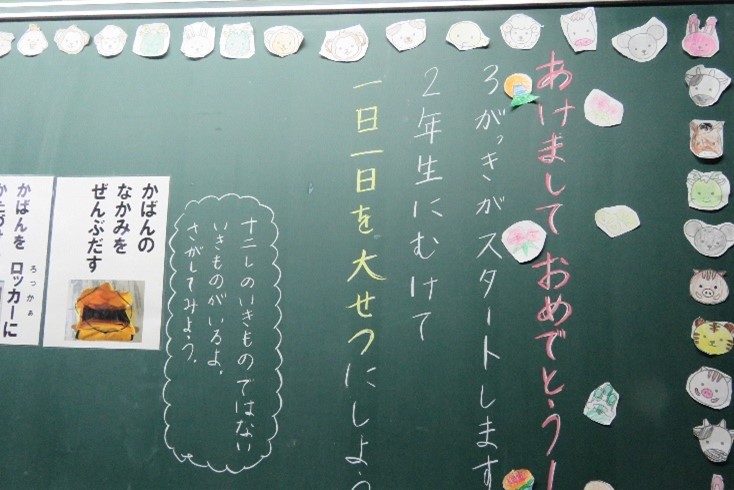 あけましておめでとう！
3がっきがスタートします
2年生にむけて
一日一日を大せつにしよう
十二しのいきものではない
いきものがいるよ。
さがしてみよう。
かばんの
なかみを
ぜんぶだす
かばんを ロッカーに
ろっかぁ